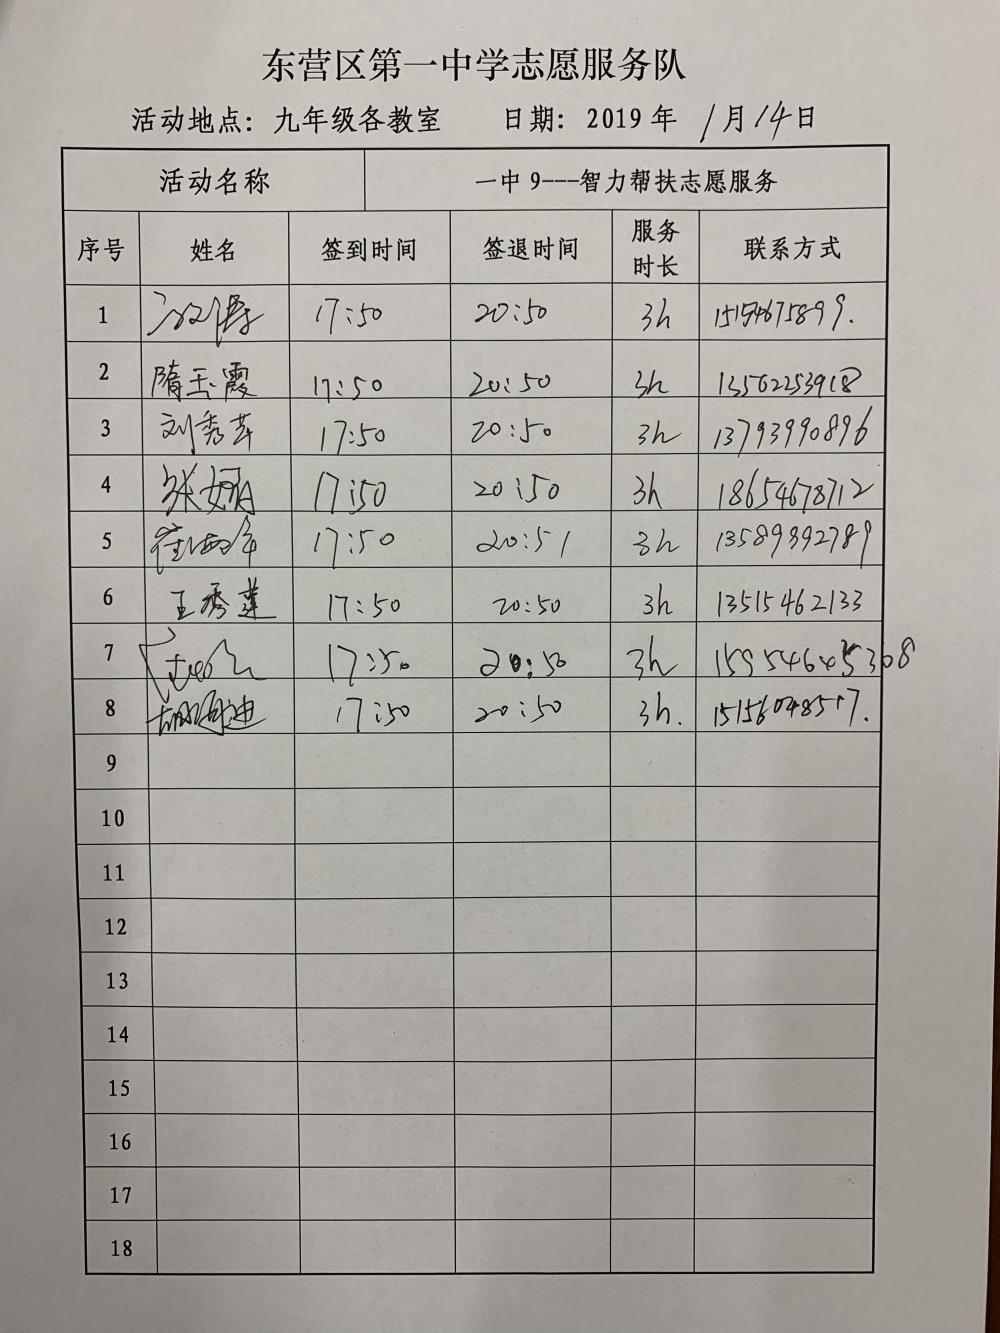 东营区第一中学志愿服务队
活动地点：九年级各教室 日期：2019 年 1月14日
活动名称 一中 9---智力帮扶志愿服务
序号 姓名 签到时间 签退时间 服务时长 联系方式
1 17:50 20:50 3h 15154675899.
2 隋玉霞 17:50 20:50 3h
3 刘秀芹 17:50 20:50 3h 13793990896
4 张娜 17:50 20:50 3h 18654678712
5 17:50 20:51 3h 13589992789
6 王秀莲 17:50 20:50 3h 13515462133
7 17:50 20:50 3h
8 17:50 20:50 3h. 15156048517.
9
10
11
12
13
14
15
16
17
18